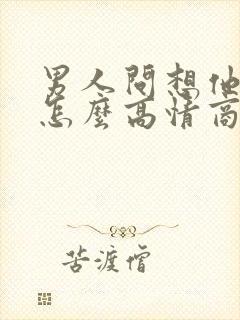 男人問想他
怎麼高情商
苦渡僧